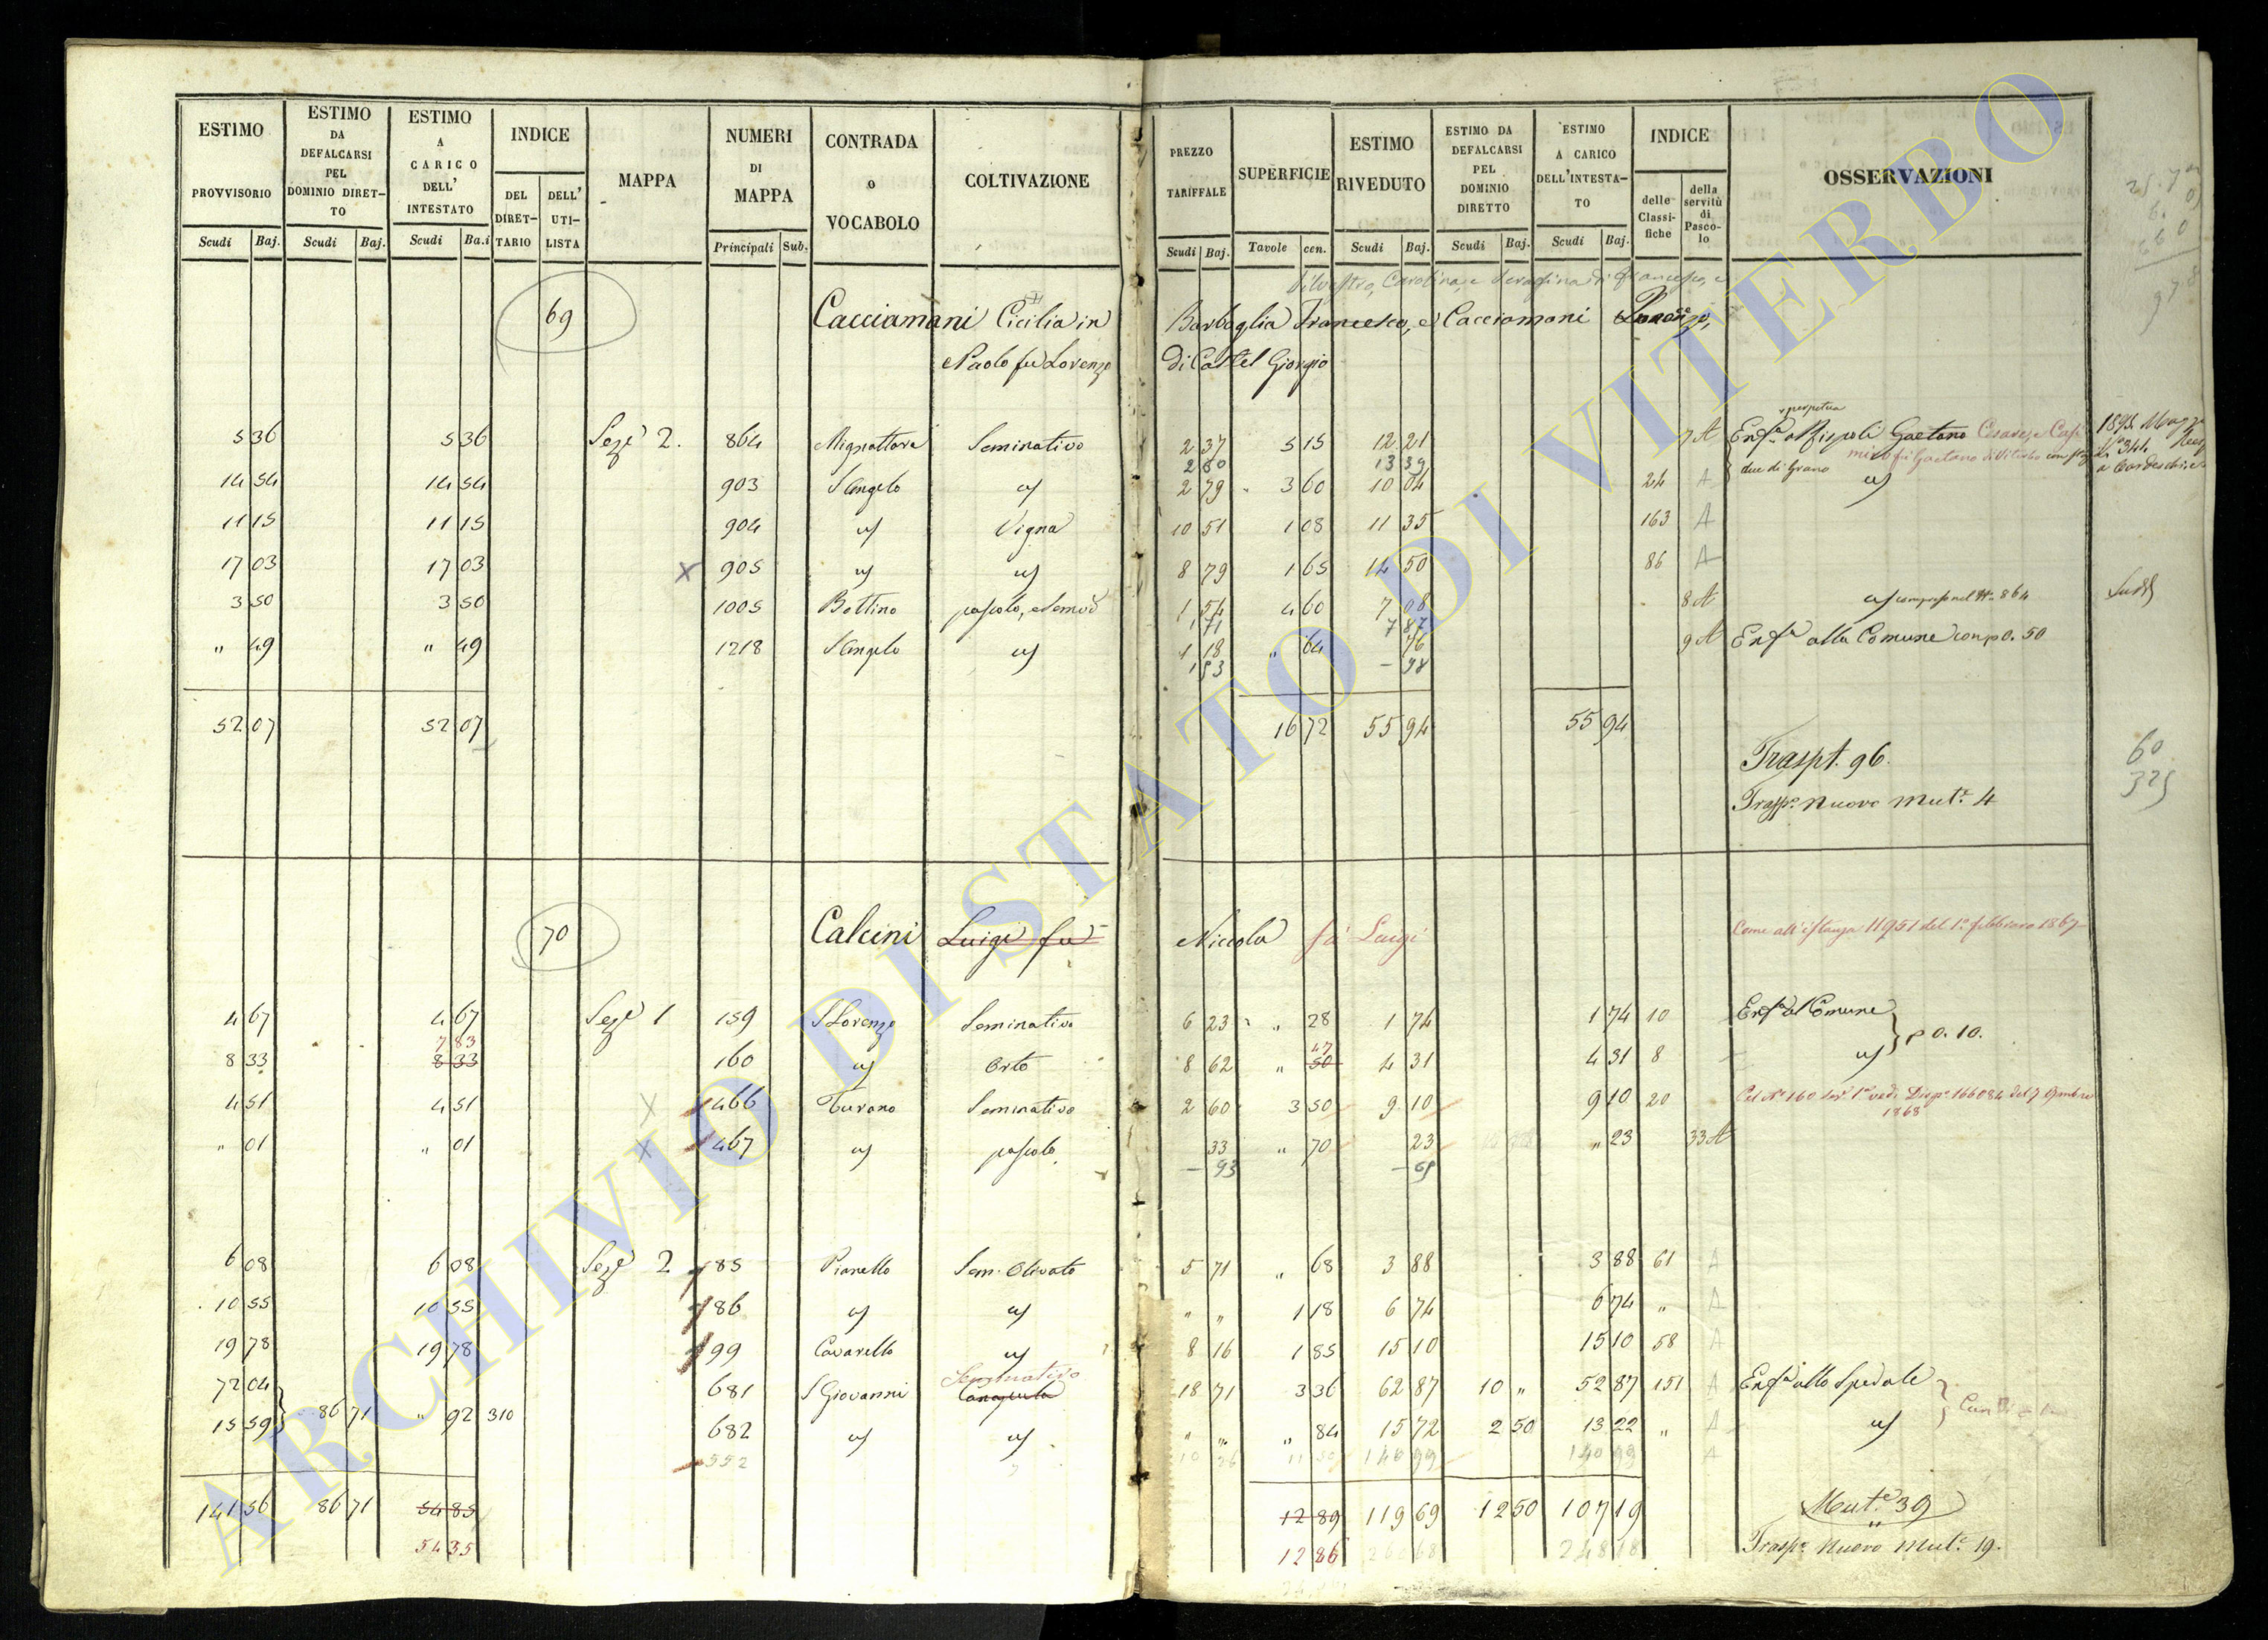 ESTIMO PROVVISORIO | ESTIMO DA DEFALCARSI PEL DOMINIO DIRETTO | ESTIMO A CARICO DELL' INTESTATO | INDICE | MAPPA | NUMERI DI MAPPA | CONTRADA O VOCABOLO | COLTIVAZIONE | PREZZO TARIFFALE | SUPERFICIE | ESTIMO RIVEDUTO | ESTIMO DA DEFALCARSI PEL DOMINIO DIRETTO | ESTIMO A CARICO DELL'INTESTATO | INDICE | OSSERVAZIONI
DEL DIRETTARIO | DELL' UTILISTA | delle Classifiche | della servitù di Pascolo
Scudi Baj. | Scudi Baj. | Scudi Ba.i | Principali Sub. | Scudi Baj. | Tavole cen. | Scudi Baj. | Scudi Baj. | Scudi Baj.
Silvestro, Carolina, e Serafina di Francesco, e
69 Cacciamani Cicilia in Barbaglia Francesco, e Cacciamani
Paolo fu Lorenzo di Castel Giorgio
perpetua
5 36 | 5 36 | Seze 2. | 864 | Mignattara | Seminativo | 2 37 | 5 15 | 12 21 | 7 A | Enfa a Rispoli Gaetano Cesare, e
2 60 | 13 39 | fu Gaetano di Viterbo
due di Grano
14 54 | 14 54 | 903 | S Angelo | " | 2 79 | 3 60 | 10 04 | 24 | A | "
11 15 | 11 15 | 904 | " | Vigna | 10 51 | 1 08 | 11 35 | 163 | A
17 03 | 17 03 | X | 905 | " | " | 8 79 | 1 65 | 14 50 | 86 | A
3 50 | 3 50 | 1005 | Bottino | pascolo, e Semvo | 1 54 | 4 60 | 7 08 | 8 A | " compreso nel No 864
1 71 | 7 87
" 49 | " 49 | 1218 | S Angelo | " | 1 18 | " 64 | 76 | 9 A | Enfa alla Comune con p 0. 50
1 53 | - 98
52 07 | 52 07 | 16 72 | 55 94 | 55 94
Traspt. 96.
60
325
Traspo nuovo mute 4
70 Calcini Luigi fu Niccola fu Luigi
Come all'istanza 11951 del 1o febbraro 1867
4 67 | 4 67 | Sezе 1 | 159 | S Lorenzo | Seminativo | 6 23 | " 28 | 1 74 | 1 74 | 10 | Enfa al Comune
7 83 | 47 | p 0. 10.
8 33 | 8 33 | 160 | " | Orto | 8 62 | " 50 | 4 31 | 4 31 | 8 | "
4 51 | 4 51 | X | 466 | Turano | Seminativo | 2 60 | 3 50 | 9 10 | 9 10 | 20 | Pel No 160 Sez 1a vedi Dispo 166084 del 7 9mbre
1868
" 01 | " 01 | X | 467 | " | pascolo | 33 | " 70 | 23 | " 23 | 33 A
- 93 | - 65
6 08 | 6 08 | Seze 2 | 85 | Pianello | Sem. Olivato | 5 71 | " 68 | 3 88 | 3 88 | 61 | A
10 55 | 10 55 | 86 | " | " | " " | 1 18 | 6 74 | 6 74 | " | A
19 78 | 19 78 | 99 | Cavarello | " | 8 16 | 1 85 | 15 10 | 15 10 | 58 | A
Seminativo
72 04 | 681 | S Giovanni | Canapula | 18 71 | 3 36 | 62 87 | 10 " | 52 87 | 151 | A | Enfa allo Spedale
15 59 | 86 71 | " 92 | 310 | 682 | " | " | " " | " 84 | 15 72 | 2 50 | 13 22 | " | A | "
552 | 140 99 | 140 99 | A
141 56 | 86 71 | 54 85 | 12 89 | 119 69 | 12 50 | 107 19 | Mute 39
54 35 | 12 86 | 248 18 | Traspo nuovo mute 19.
ARCHIVIO DI STATO DI VITERBO